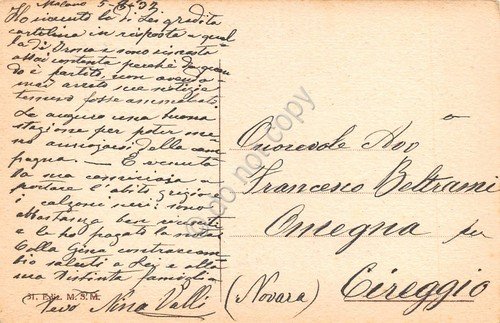 Milano 5-6-32
Ho ricevuto la di Lei gradita
cartolina in risposta a quel
la di Verona e sono rimasta
assai contenta perchè da quan
do è partito, non avendo
mai avuto sue notizie
temevo fosse ammalato.
Le auguro una buona
stagione per poter me
no annoiarsi dalla cam
pagna. — È venuta
la sua camiciaia a
portare l'abito grigio
i calzoni neri sono
abbastanza ben riusciti
e le ho pagato la nota
Colla Gina contraccam
bio saluti a Lei e alla
sua distinta famiglia
Nina Valli
31. Ediz. M. S. M.
Onorevole Avv
Francesco Beltrami
Omegna per
(Novara) Cireggio
do not copy